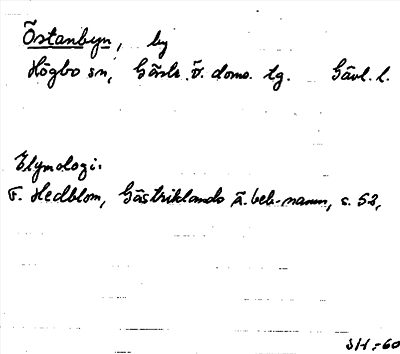 Östanbyn, by
Högbo sn, Gästr. ö. doms. tg. Gävl. l.
Etymologi:
F. Hedblom, Gästriklands ä. beb-namn, s. 52,
SH.-60